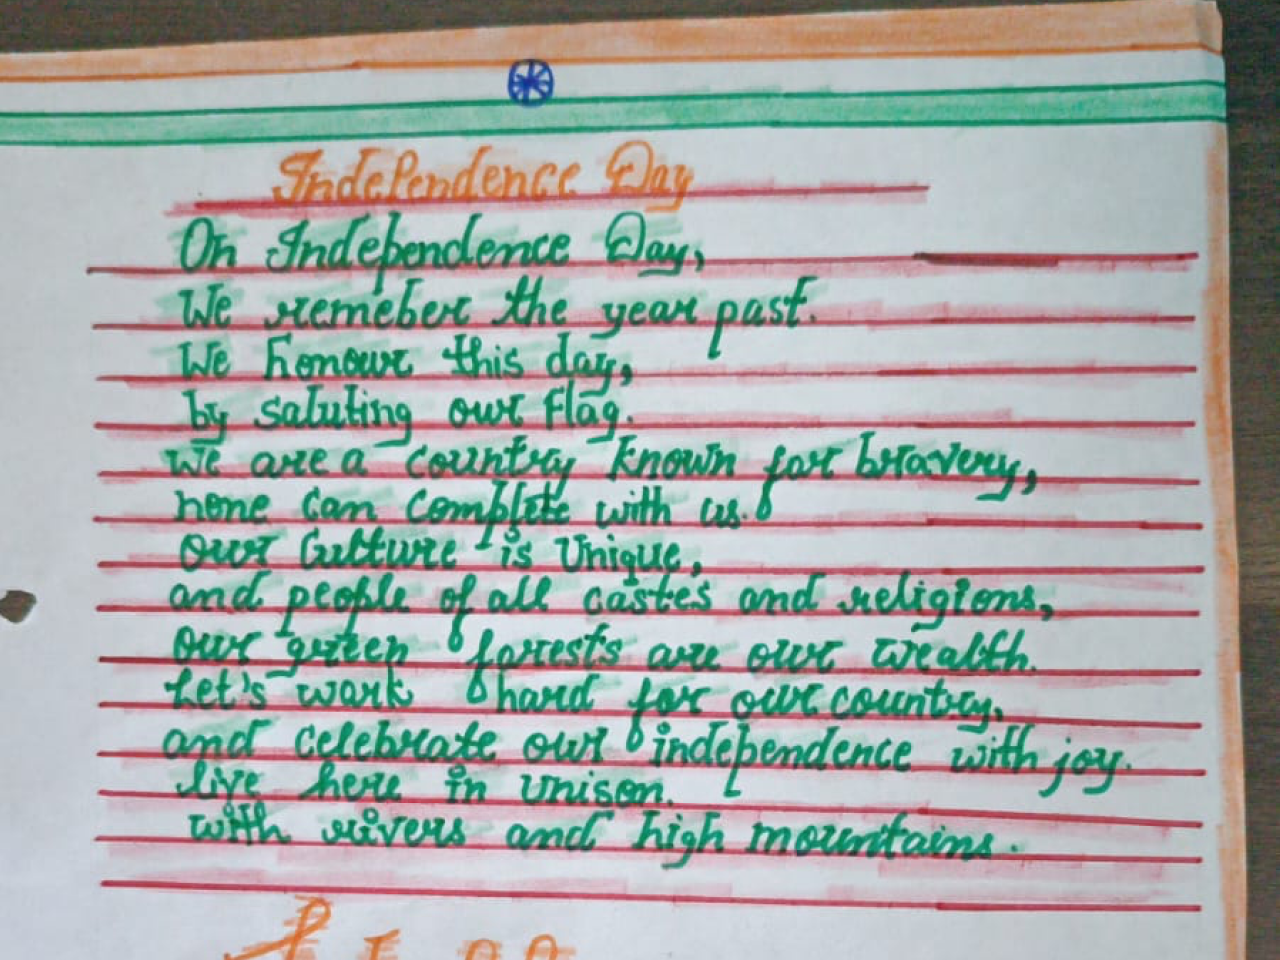 Independence Day
On Independence Day,
We remeber the year past.
We honour this day,
by saluting our flag.
We are a country known for bravery,
none can complete with us.
our Culture is Unique,
and people of all castes and religions,
our green forests are our wealth.
Let's work hard for our country,
and celebrate our independence with joy.
live here in unison.
with rivers and high mountains.